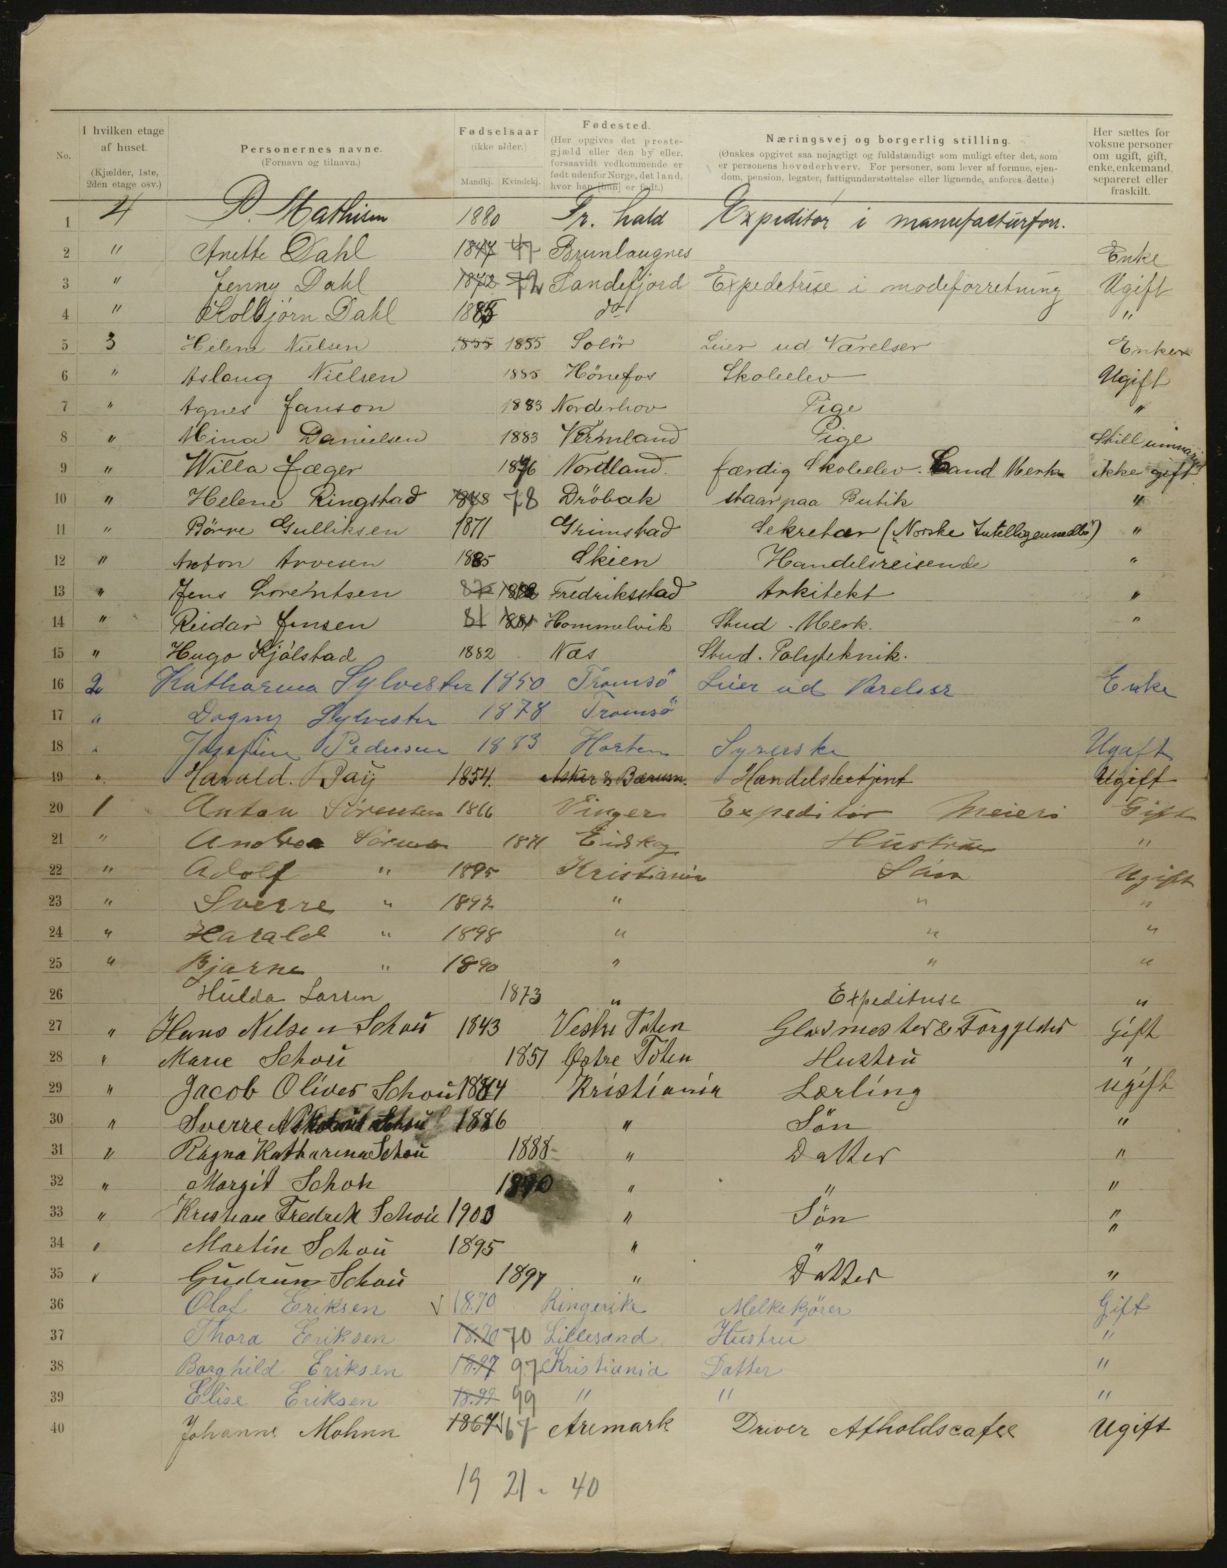 No.
I hvilken etage af huset.
(Kjælder, 1ste, 2den etage osv.)
Personernes navne.
(Fornavn og tilnavn.)
Fødselsaar
(ikke alder.)
Mandkj. Kvindekj.
Fødested.
(Her opgives det prestegjæld eller den by eller, forsaavidt vedkommende er født udenfor Norge, det land, hvor han (hun) er født.)
Næringsvej og borgerlig stilling.
(Ønskes opgivet saa nøjagtigt og fuldstændigt som muligt efter det, som er personens hovederhverv. For personer, som lever af formue, ejendom, pension, legater, fattigunderstøttelse eller lignende, anføres dette.)
Her sættes for voksne personer om ugift, gift, enke, enkemand, separeret eller fraskilt.
1 4 P. Mathisen 1880 Fr. hald Expeditør i manufacturfor.
2 " Anette Dahl 1847 47 Brunlaugnes Enke
3 " Jenny Dahl 1872 72 Sandefjord Expedetrise i modeforretning Ugift
4 " Kolbjörn Dahl 1885 do "
5 3 Helene Nielsen 1855 1855 Solör Leier ud Værelser Enke
6 " Aslaug Nielsen 1885 Hönefos Skoleelev Ugift
7 " Agnes Janson 1883 Norderhov Pige "
8 " Mina Danielsen 1883 Vermland Pige
9 " Willa Jæger 1876 Nordland færdig Skoleelev. Cand Merk ikke gift
10 " Helene Ringstad 78 Dröbak staar paa Butik "
11 " Börre Gulliksen 1871 Grimstad Sekretær (Norske Intelligenssedler) "
12 " Anton Arvesen 1885 Skien Handelsreisende "
13 " Jens Lorentsen Fredriksstad Arkitekt "
14 " Reidar Jensen 81 1881 Hommelvik Stud. Merk. "
15 " Hugo Kjölstad 1882 Næs Stud. Polyteknik.
16 2 Katharina Sylvester 1850 Tromsö Leier ud Værelser Enke
17 " Dagny Sylvester 1878 Tromsö
18 " Josefine Pedersen 1883 Horten Syerske Ugift
19 " Harald. Pay 1854. Asker & Bærum. Handelsbetjent Ugift
20 1 Anton Sörensen 1866 Vinger Expeditör Meieri Gift
21 " Andrea Sörensen 1871 Eidskog Hustru "
22 " Adolf " 1895 Kristiania Sön Ugift
23 " Sverre " 1892 " " "
24 " Harald " 1898 " " "
25 " Bjarne " 1890 " " "
26 Hulda Larsen 1873 " Expeditrise "
27 " Hans Nilsen Schou 1843 Vestre Toten Glasmester & Forgylder Gift
28 " Marie Schou 1851 Østre Toten Hustru "
29 " Jacob Oliver Schou 1884 Kristiania Lærling ugift
30 " Sverre Schou 1886 " Sön "
31 " Ragna Katharina Schou 1888 " Datter "
32 " Margit Schou 1890 " " "
33 " Kristian Fredrik Schou 1900 " Sön "
34 " Martin Schou 1895 " " "
35 " Gudrun Schou 1897 " Datter "
36 Olaf Eriksen 1870 Ringerike Melkekjörer Gift
37 Thora Eriksen 1870 70 Lillesand Hustru "
38 Borghild Eriksen 1897 97 Kristiania Datter "
39 Elise Eriksen 1899 99 " " "
40 Johanne Mohnn 1867 67 Aremark Driver Afholdscafee Ugift
19 21 - 40